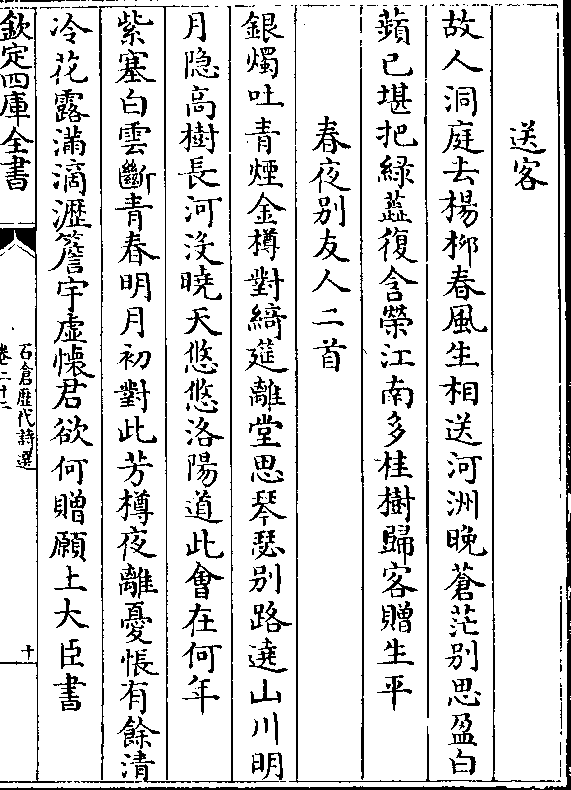 送客
故人洞庭去楊柳春風生相送河洲晚蒼茫别思盈白
蘋已堪把緑蕋復含榮江南多桂樹歸客贈生平
春夜别友人二首
銀燭吐青煙金樽對綺筵離堂思琴瑟别路遶山川明
月隐高樹長河没曉天悠悠洛陽道此會在何年
紫塞白雲斷青春明月初對此芳樽夜離憂悵有餘清
冷花露滿滴瀝簷宇虚懐君欲何贈願上大臣書
欽定四庫全書
石倉歷代詩選
卷二十二
十